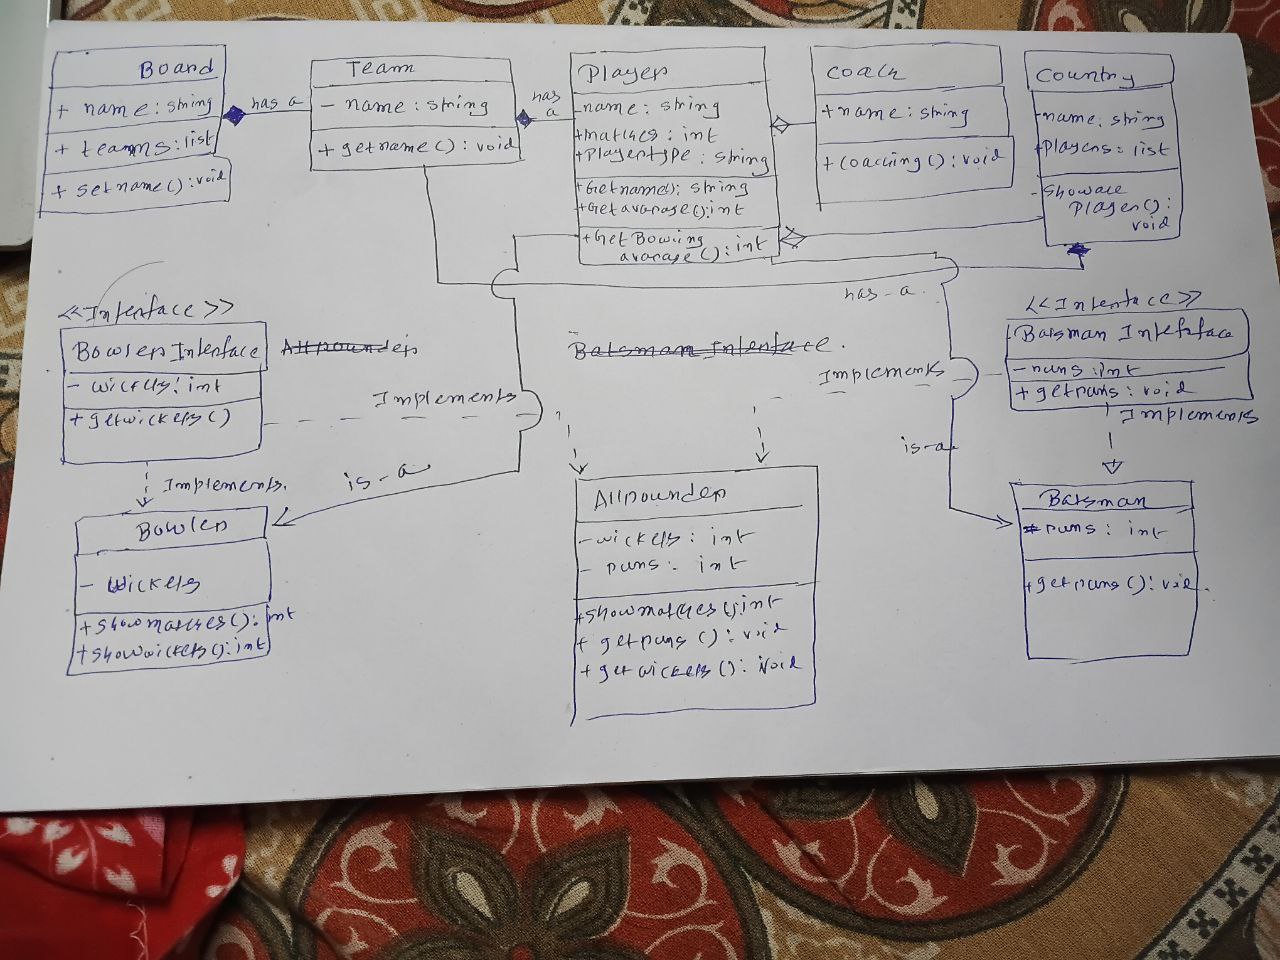 Board
+ name: string
+ teams: list
+ setname(): void
has a
Team
- name: string
+ getname(): void
has
a
Player
-name: string
+matches: int
+Playertype: string
+Getname(): string
+Getavarage(): int
+GetBowling
avarage(): int
coach
+name: string
+coaching(): void
Country
-name: string
+Players: list
-Showall
Player():
void
has-a
<<Interface>>
Bowler Interface
- wickets: int
+ getwickets()
Allrounder
Batsman Interface.
<<Interface>>
Batsman Interface
- runs: int
+ getruns: void
Implements
Implements
Implements
Implements.
is-a
is-a
Bowler
- Wickets
+showmatches(): int
+showwickets(): int
Allrounder
-wickets: int
- runs: int
+showmatches(): int
+ getruns(): void
+ getwickets(): Void
Batsman
# runs: int
+getruns(): void.